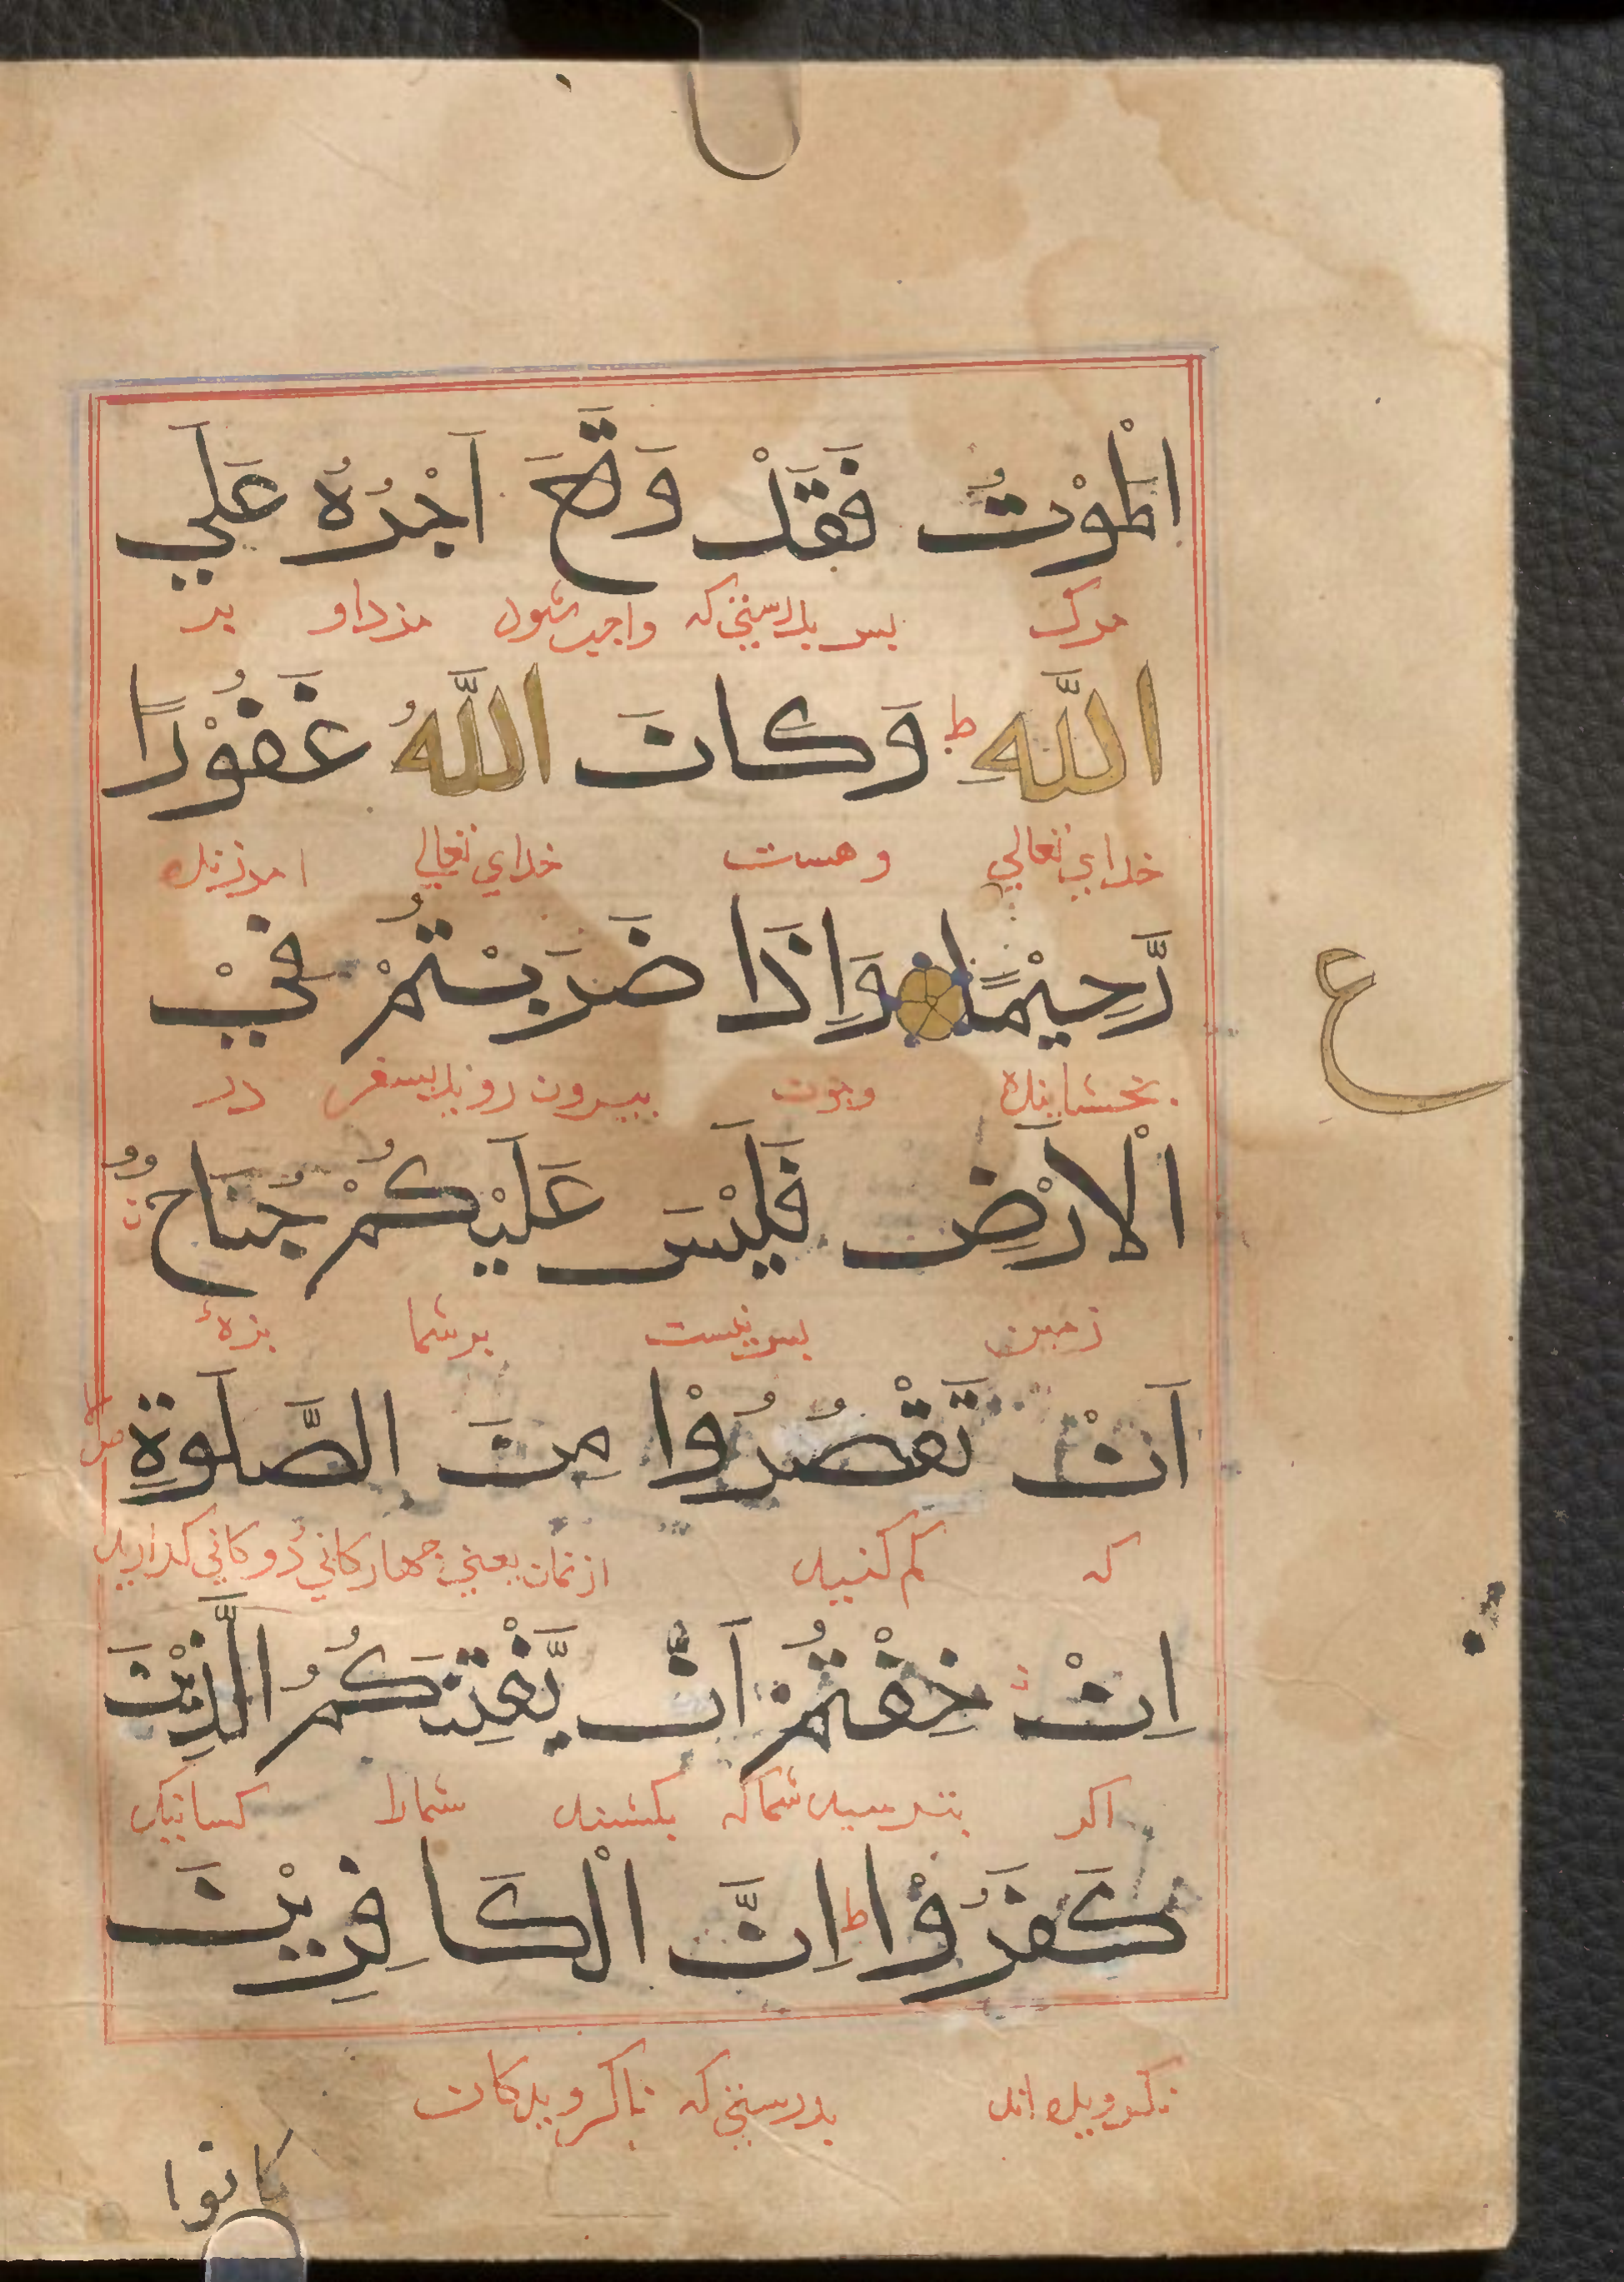 الْمَوْتُ فَقَدْ وَقَعَ اَجْرُهُ عَلَي
مرک بس بدرستی که واجب شود مزد او بر
اللّٰهِ ط وَكَانَ اللّٰهُ غَفُوْرًا
خدای تعالی و هست خدای تعالی امرزنده
رَّحِيْمًا وَاِذَا ضَرَبْتُمْ فِيْ
ع
بخشاینده وجون بیرون روید بسفر در
الْاَرْضِ فَلَيْسَ عَلَيْكُمْ جُنَاحٌ
زمین بس نیست بر شما بزهٔ
اَنْ تَقْصُرُوْا مِنَ الصَّلَوةِ
که کم کنید از نماز یعنی جهار کانی دو کانی کذارید
اِنْ خِفْتُمْ اَنْ يَّفْتِنَكُمُ الَّذِيْنَ
اکر بترسید شما که بکشند شمارا کسانیکه
كَفَرُوْا ط اِنَّ الْكَافِرِيْنَ
نکرویده اند بدرستی که ناکرویدکان
كانوا